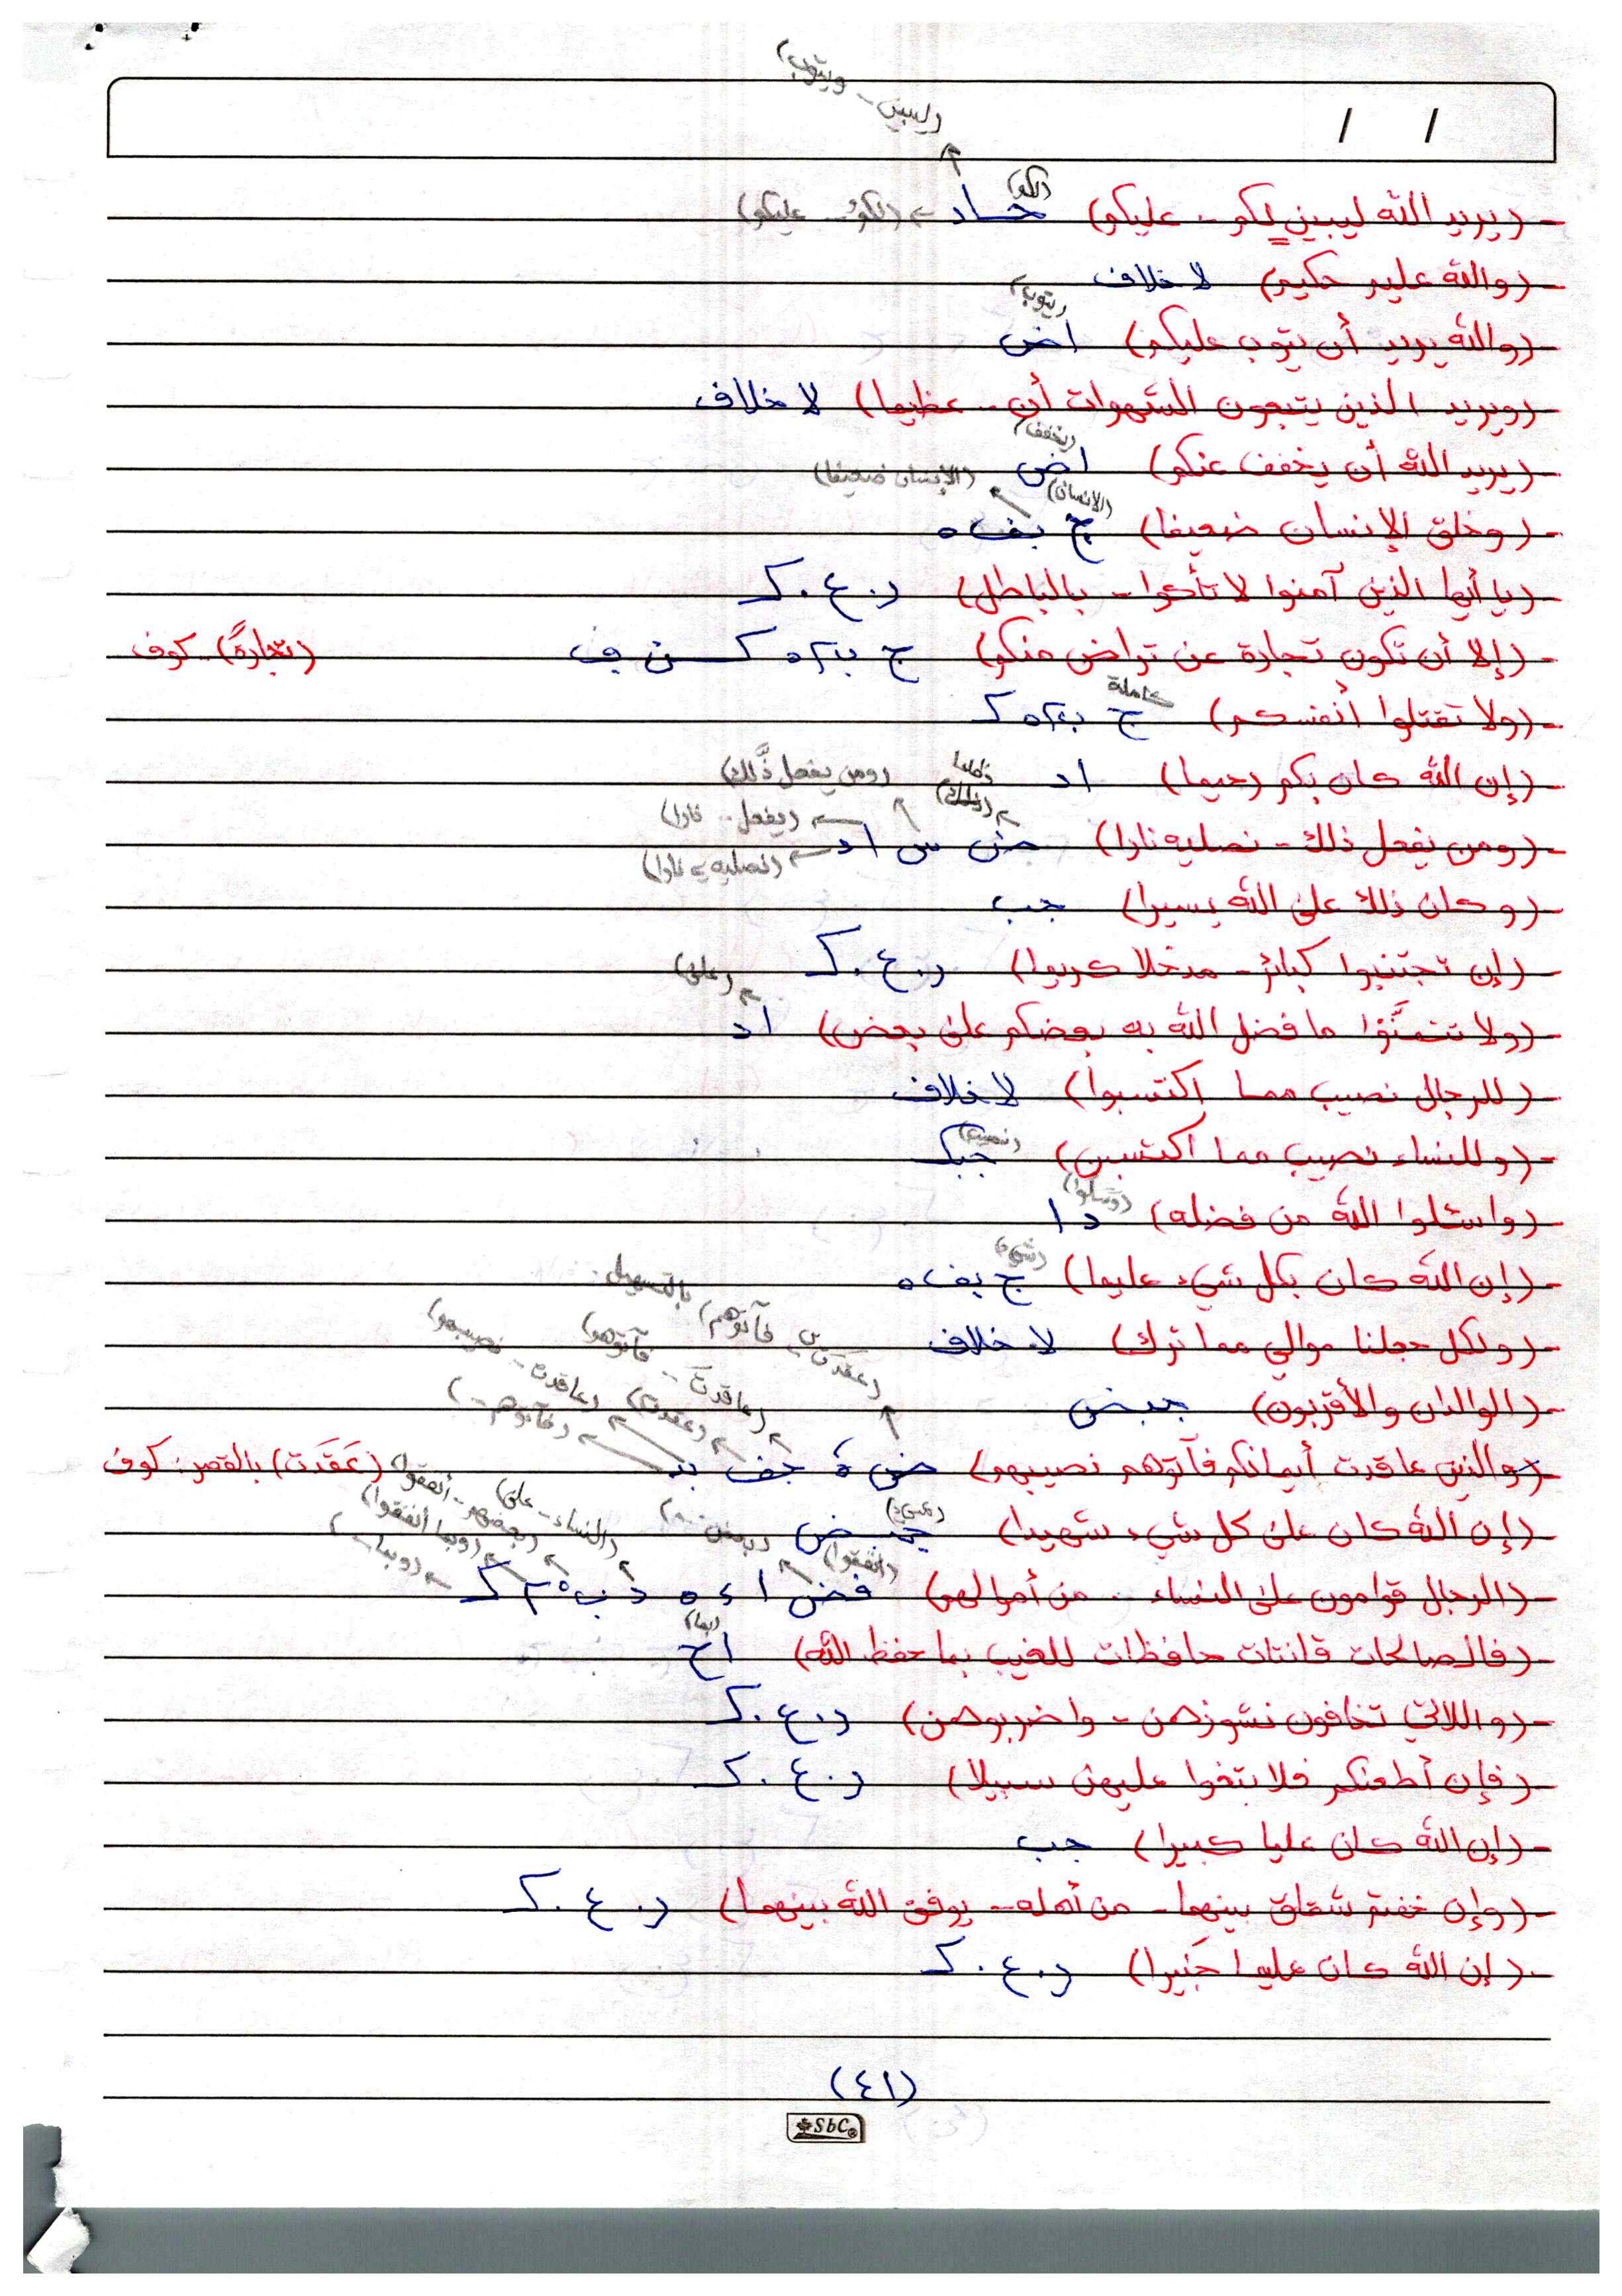 (ليبين - ويتوب)
/ /
- (يريد الله ليبين لكم - عليكم) حساد (لكم) ← (لكم - عليكم)
- (والله عليم حكيم) لا خلاف
- (والله يريد أن يتوب عليكم) اض (يتوب)
- (ويريد الذين يتبعون الشهوات أن .. عظيما) لا خلاف
- (يريد الله أن يخفف عنكم) اض (يخفف)
- (وخلق الإنسان ضعيفا) ج بف ه (الانسان) (الإنسان ضعيفا)
- (يا أيها الذين آمنوا لا تأكلوا - بالباطل) د.ع.ك
- (إلا أن تكون تجارة عن تراض منكم) (تجارةً).. كوف
- (ولا تقتلوا أنفسكم) كاملة
- (إن الله كان بكم رحيما) اد
(ومن يفعل ذَّلك)
- (ومن يفعل ذلك - نصليه نارا) ض س اد (ذلك) ← (يفعل .. نارا)
(نصليه نارا)
- (وكان ذلك على الله يسيرا) جب
- (إن تجتنبوا كبائر - مدخلا كريما) د.ع.ك
- (ولا تتمنَّوا ما فضل الله به بعضكم على بعض) اد ← (على)
- (للرجال نصيب مما اكتسبوا) لا خلاف
- (وللنساء نصيب مما اكتسبن) جبك (نصيب)
- (واسئلوا الله من فضله) د ا (وسَلوا)
- (إن الله كان بكل شيء عليما) ج بف ه (شيء)
- (ولكل جعلنا موالي مما ترك) لا خلاف
(عقدت - فآتوهم) بالتسهيل
- (الوالدان والأقربون) جبض
(عاقدت - فآتوهم) (عاقدت - نصيبهم) (عقدت) (فآتوهم - )
- (والذين عاقدت أيمانكم فآتوهم نصيبهم) (عَقَدَت) بالقصر: كوف
- (إن الله كان على كل شيء شهيدا) (شيء)
(النساء - على) (بعضهم - أنفقوا) (وبما أنفقوا) (وبما - )
- (الرجال قوامون على النساء .. من أموالهم) فض (أنفقوا)
- (فالصالحات قانتات حافظات للغيب بما حفظ الله) اح (بما)
- (واللاتي تخافون نشوزهن - واضربوهن) د.ع.ك
- (فإن أطعنكم فلا تبغوا عليهن سبيلا) د.ع.ك
- (إن الله كان عليا كبيرا) جب
- (وإن خفتم شقاق بينهما - من أهله - يوفق الله بينهما) د.ع.ك
- (إن الله كان عليما خبيرا) د.ع.ك
(٤١)
SbC